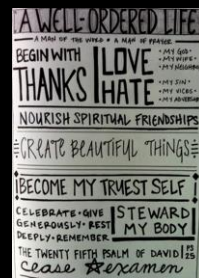 A WELL-ORDERED LIFE
A MAN OF THE WORD & A MAN OF PRAYER
BEGIN WITH
THANKS
LOVE
• MY GOD •
• MY WIFE •
• MY NEIGHBOR
HATE
• MY SIN •
• MY VICES •
• MY ADVERSARY
NOURISH SPIRITUAL FRIENDSHIPS
CREATE BEAUTIFUL THINGS
BECOME MY TRUEST SELF
CELEBRATE • GIVE
GENEROUSLY • REST
DEEPLY • REMEMBER
STEWARD
MY BODY
THE TWENTY FIFTH PSALM OF DAVID PS 25
cease examen